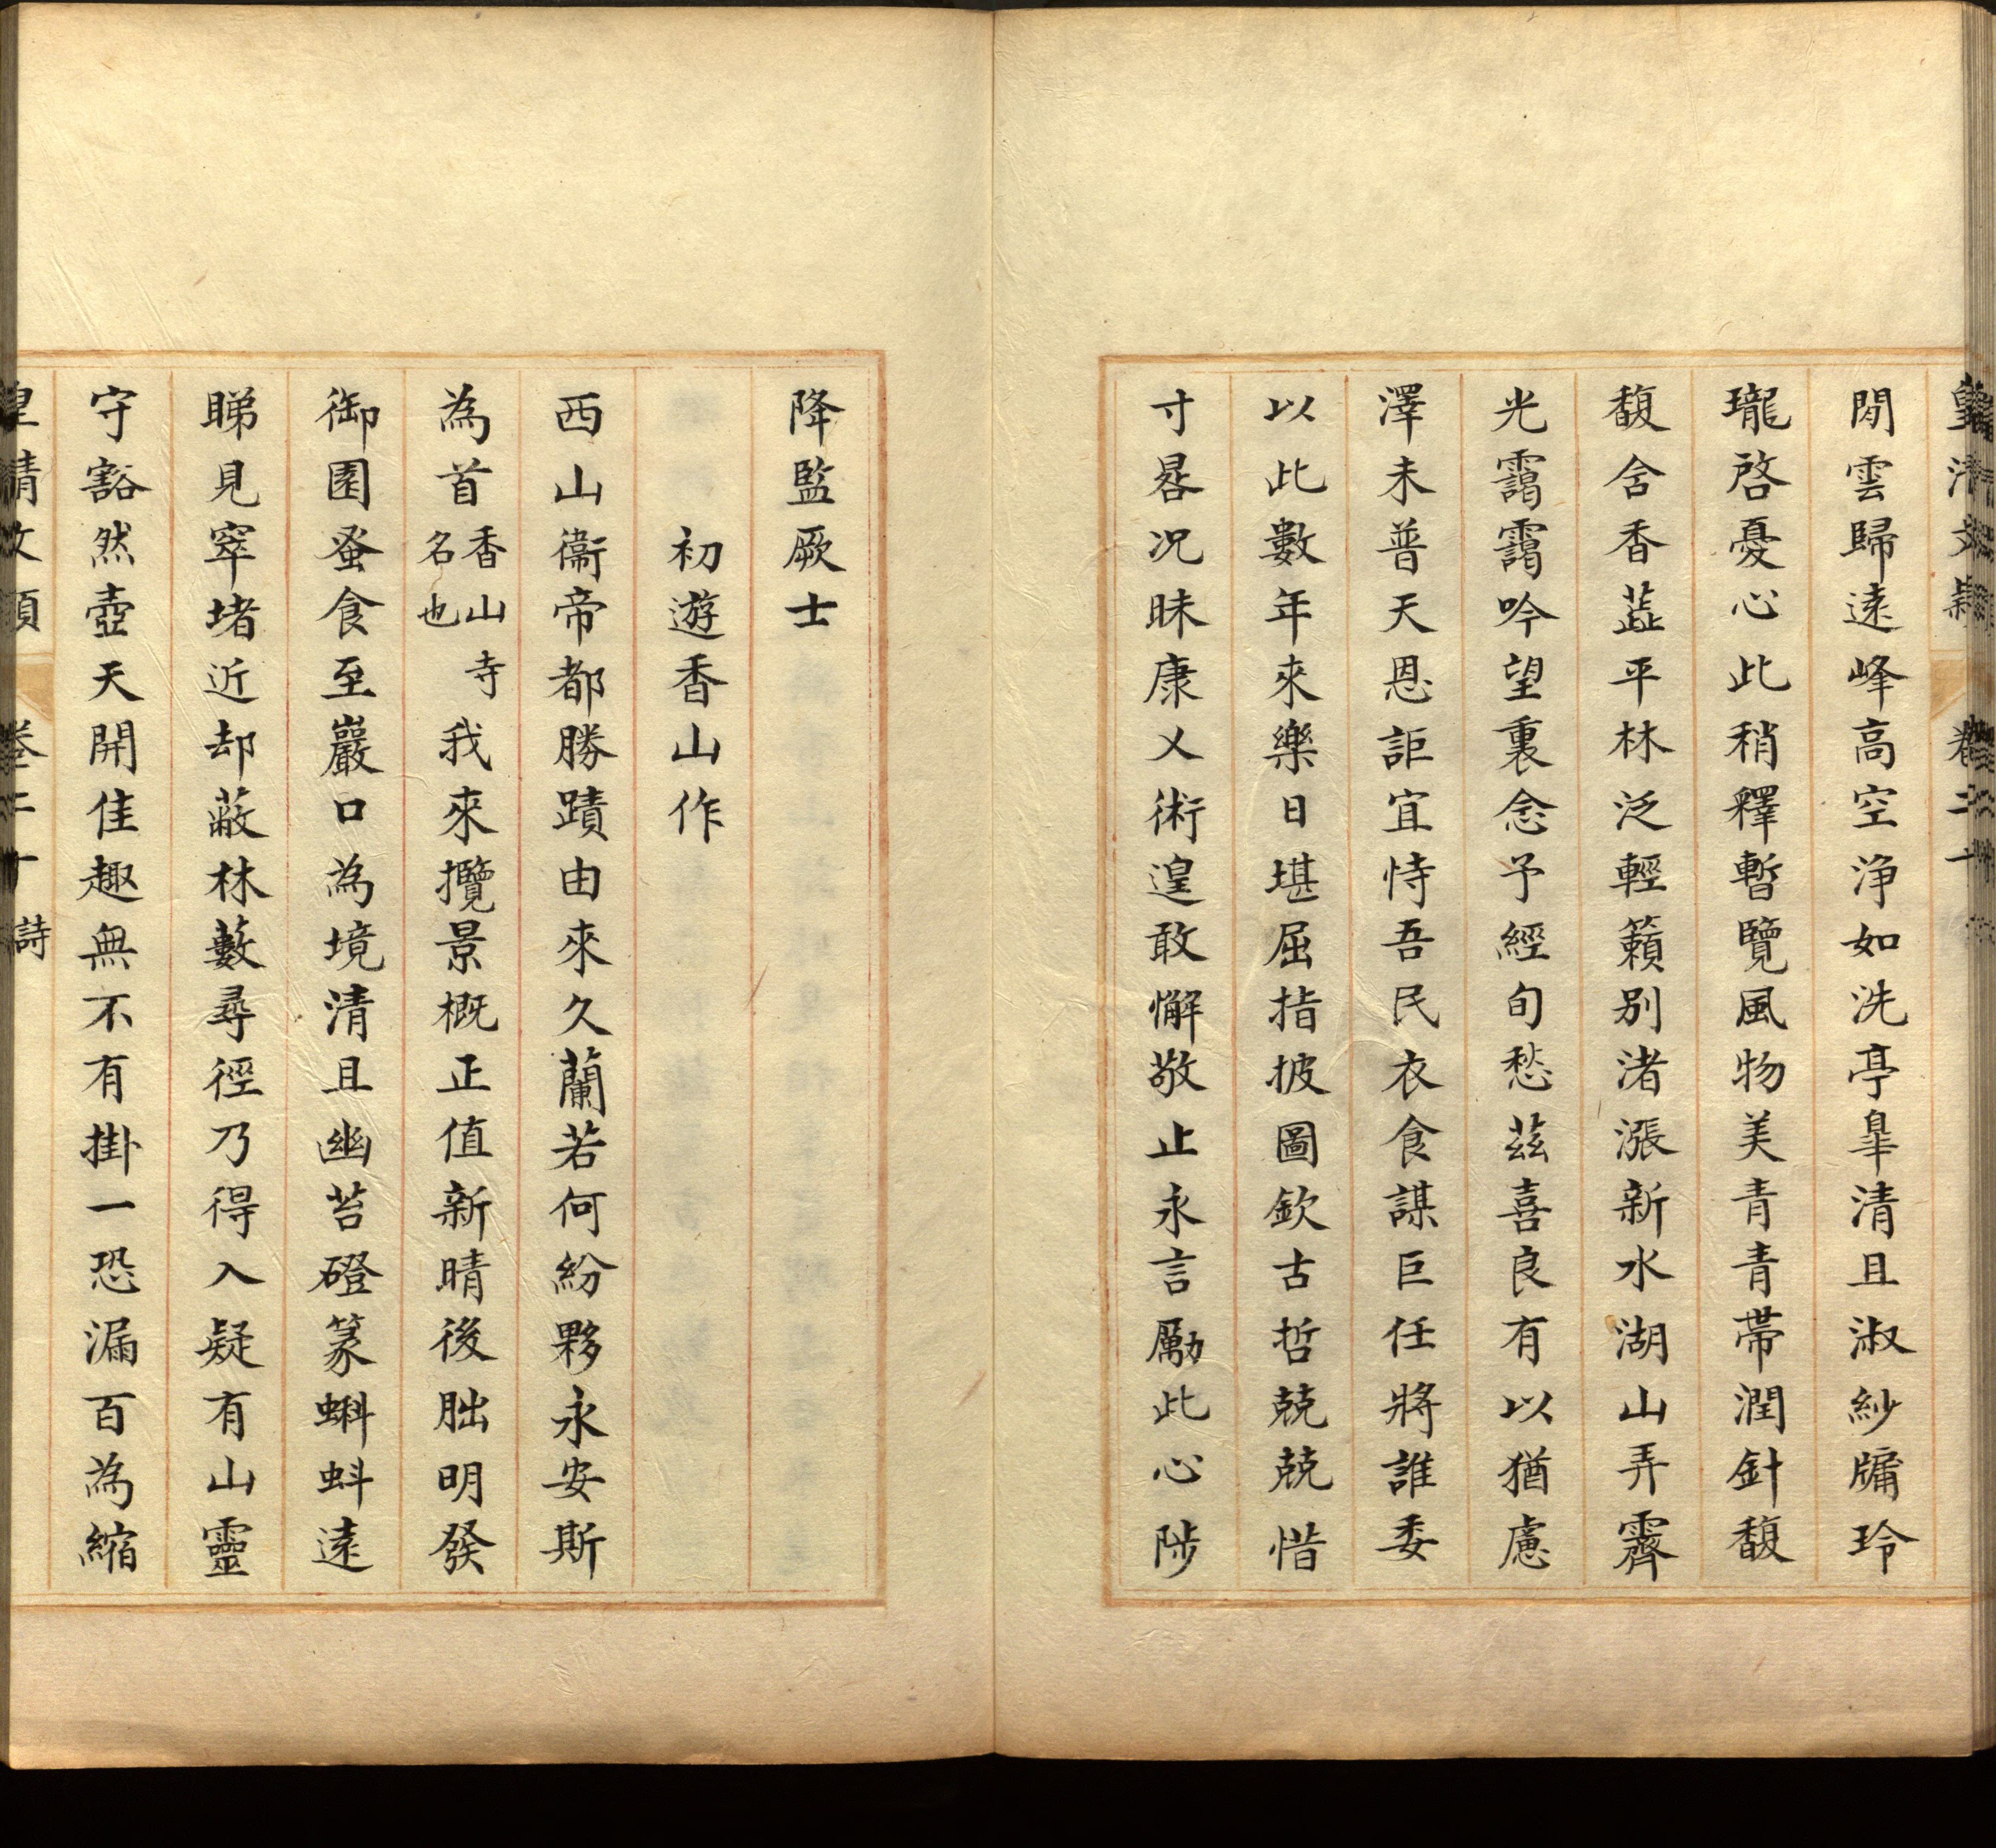 皇清文穎 卷二十
閒雲歸遠峰高空淨如洗亭皐清且淑紗牖玲
瓏啓憂心此稍釋暫覽風物美青青帶潤針馥
馥含香蕋平林泛輕籟别渚漲新水湖山弄霽
光靄靄吟望裏念予經旬愁茲喜良有以猶慮
澤未普天恩詎宜恃吾民衣食謀巨任將誰委
以此數年來樂日堪屈指披圖欽古哲兢兢惜
寸晷况昧康乂術遑敢懈敬止永言勵此心陟
降監厥士
初遊香山作
西山衞帝都勝蹟由來久蘭若何紛夥永安斯
為首香山寺名也我來攬景概正值新晴後朏明發
御園蚤食至巖口為境清且幽苔磴篆蝌蚪遠
睇見窣堵近却蔽林藪尋徑乃得入疑有山靈
守豁然壺天開佳趣無不有掛一恐漏百為縮
皇清文穎 卷二十 詩